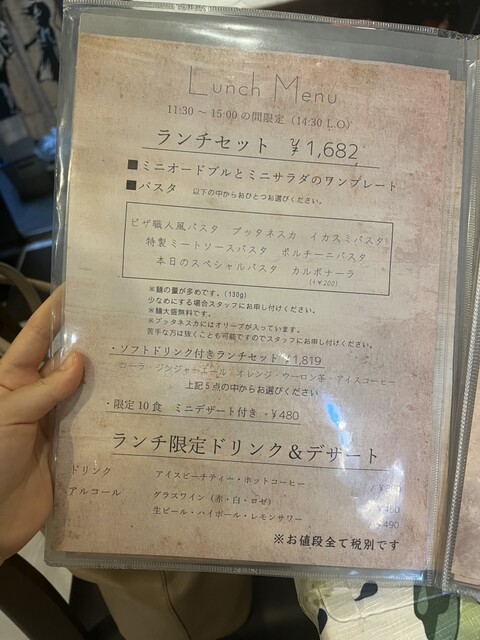 Lunch Menu
11:30 ~ 15:00 の間限定 (14:30 L.O)
ランチセット ¥1,682
■ミニオードブルとミニサラダのワンプレート
■パスタ 以下の中からおひとつお選びください。
ピザ職人風パスタ プッタネスカ イカスミパスタ
特製ミートソースパスタ ポルチーニパスタ
本日のスペシャルパスタ カルボナーラ
(+¥200)
※麺の量が多めです。(130g)
少なめにする場合スタッフにお申し付けください。
※麺大盛無料です。
※プッタネスカにはオリーブが入っています。
苦手な方は抜くことも可能ですのでスタッフにお申し付けください。
・ソフトドリンク付きランチセット 1,819
コーラ・ジンジャーエール・オレンジ・ウーロン茶・アイスコーヒー
上記5点の中からお選びください
・限定10食 ミニデザート付き +¥480
ランチ限定ドリンク&デザート
ドリンク アイスピーチティー・ホットコーヒー
アルコール グラスワイン (赤・白・ロゼ)
生ビール・ハイボール・レモンサワー 490
※お値段全て税別です